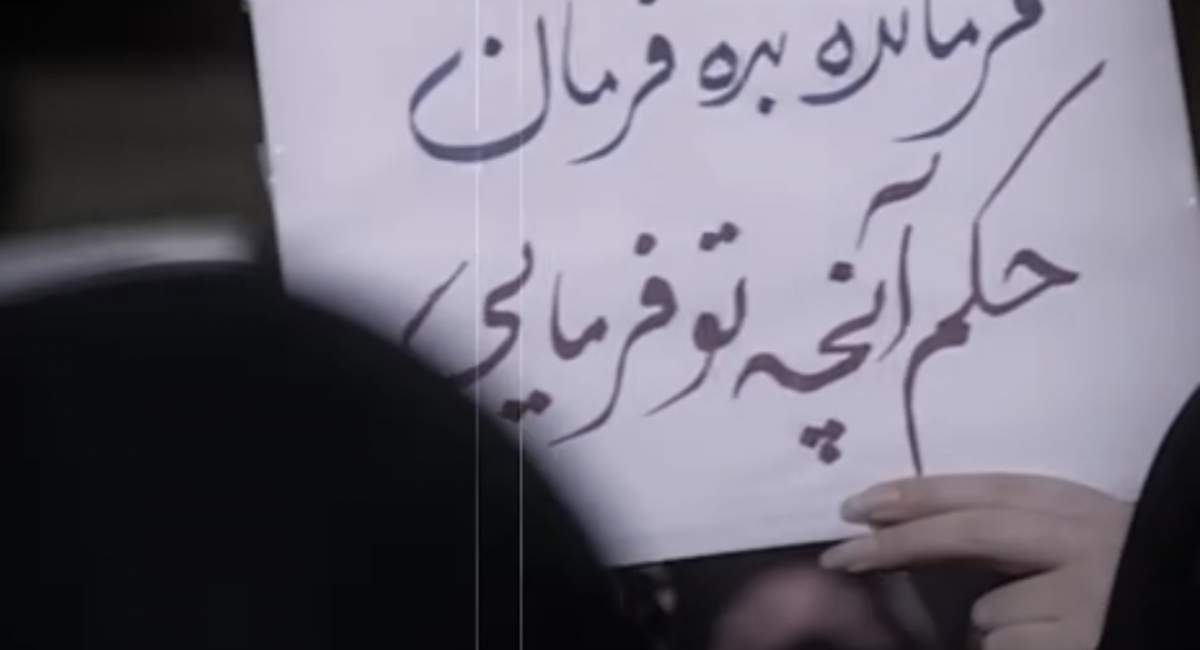 فرمانده بده فرمان
حکم آنچه تو فرمایی